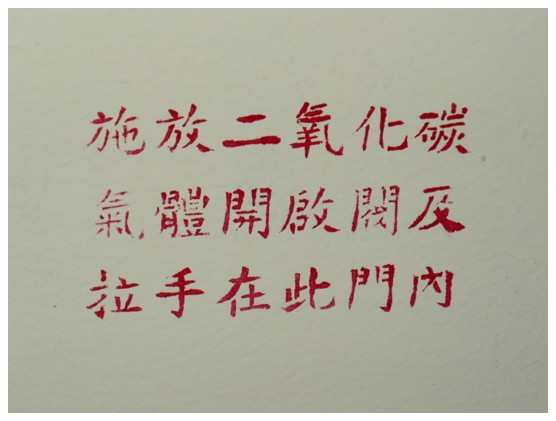 施放二氧化碳
氣體開啟閥及
拉手在此門內